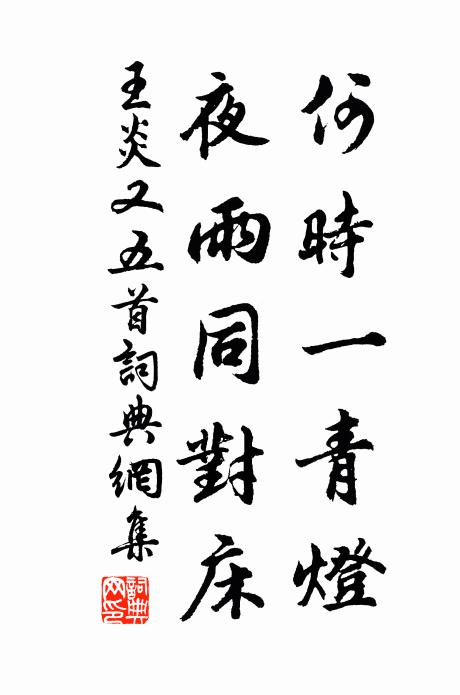 何時一青燈
夜雨同對床
王炎又五首詞典網集
詞典网印